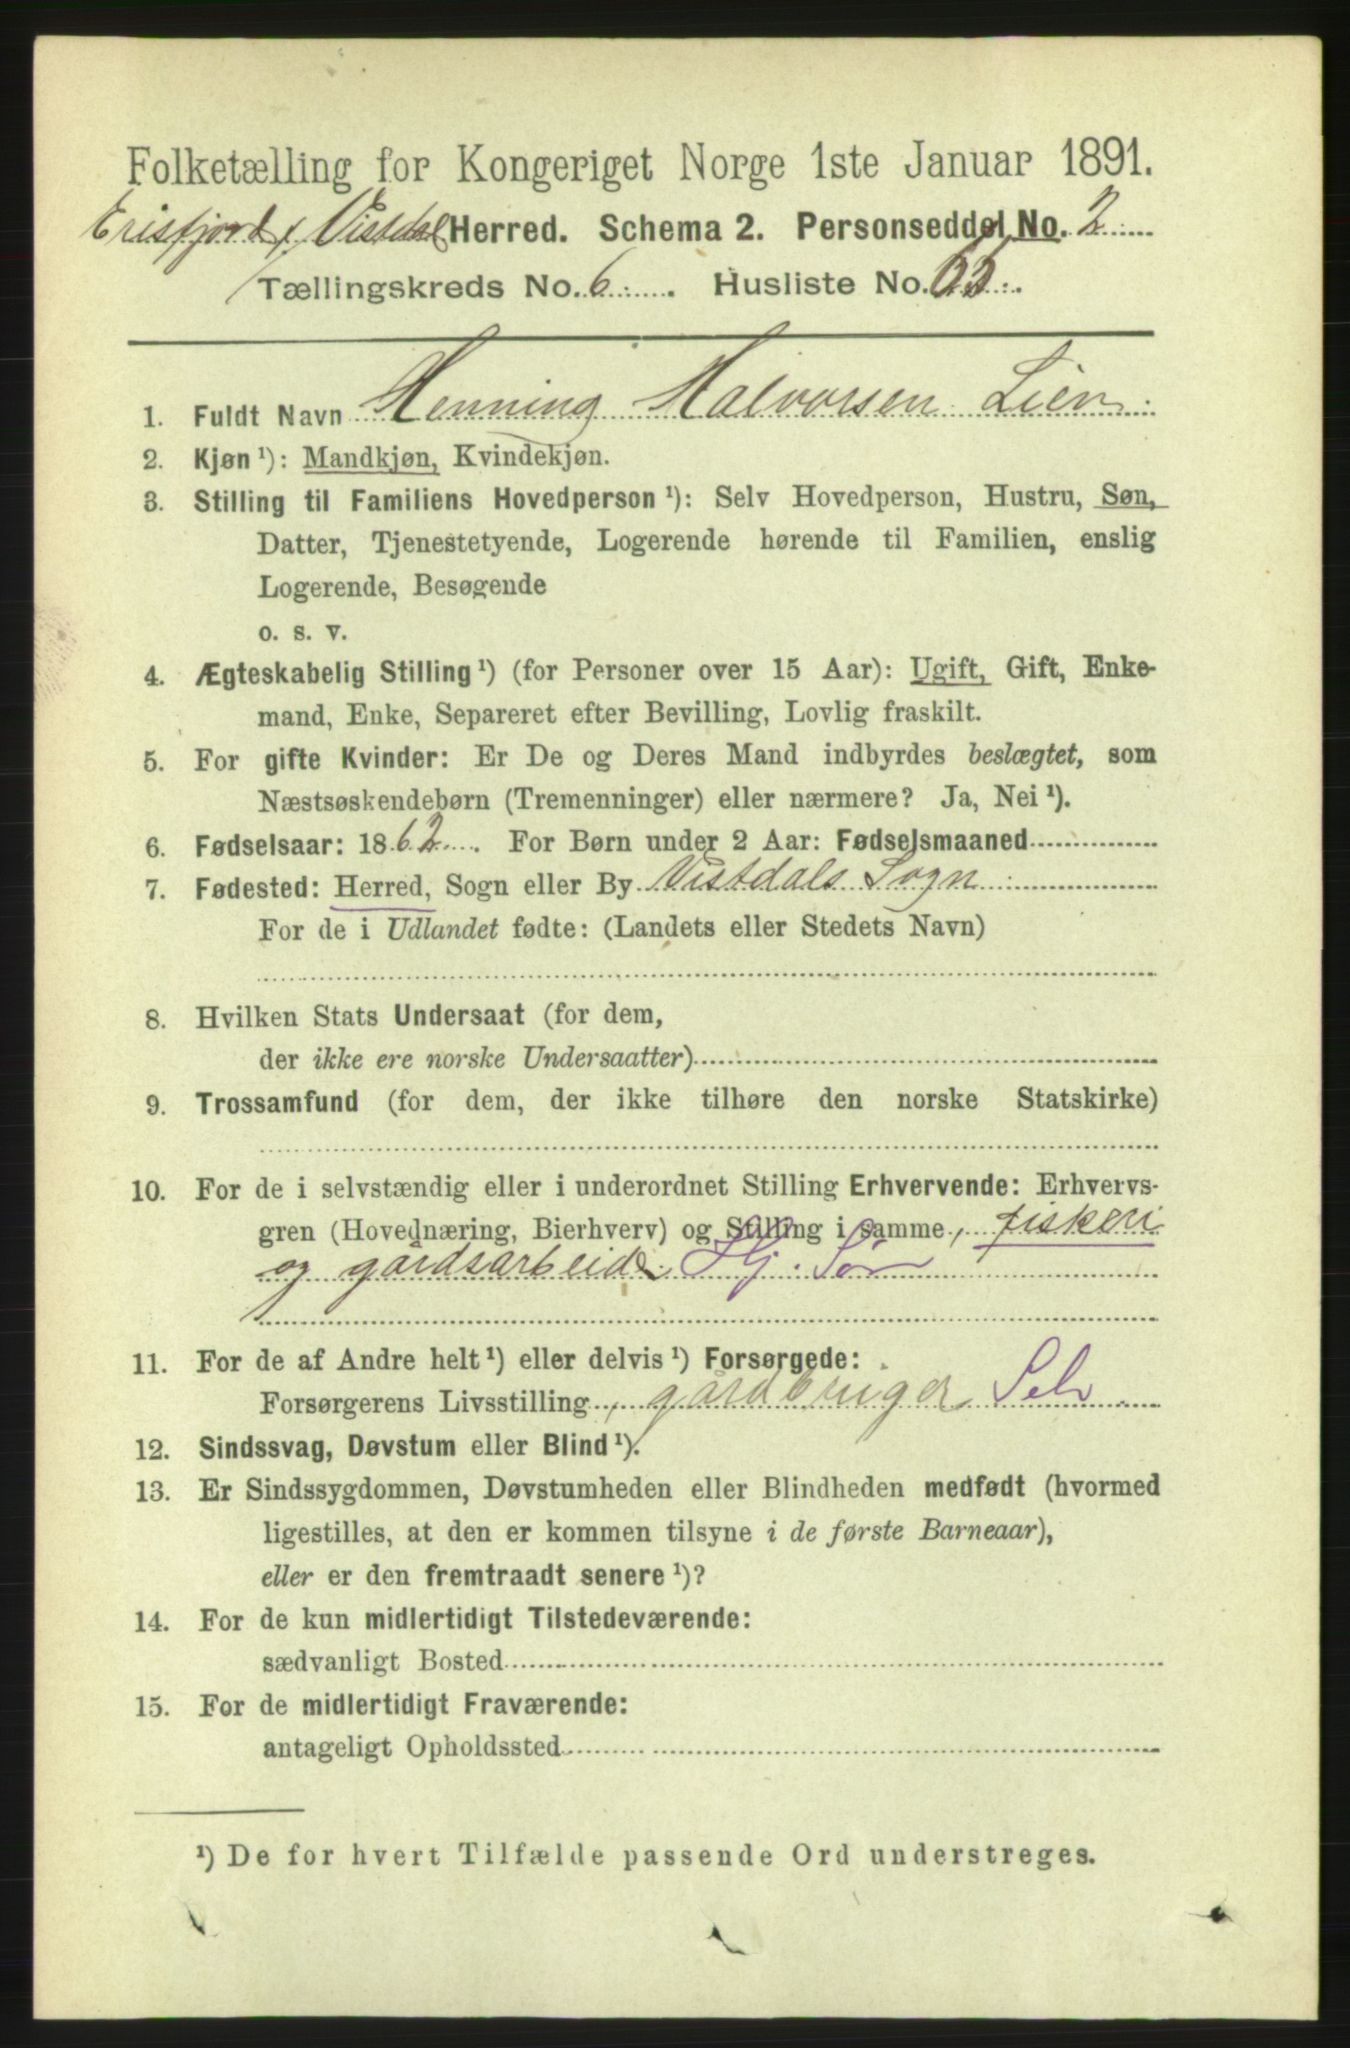 Folketælling for Kongeriget Norge 1ste Januar 1891.
Erisfjord / Vistdal Herred. Schema 2. Personseddel No. 2
Tællingskreds No. 6. Husliste No. 65.
1. Fuldt Navn Henning Halvorsen Lien
2. Kjøn ¹): Mandkjøn, Kvindekjøn.
3. Stilling til Familiens Hovedperson ¹): Selv Hovedperson, Hustru, Søn,
Datter, Tjenestetyende, Logerende hørende til Familien, enslig
Logerende, Besøgende
o. s. v.
4. Ægteskabelig Stilling ¹) (for Personer over 15 Aar): Ugift, Gift, Enke-
mand, Enke, Separeret efter Bevilling, Lovlig fraskilt.
5. For gifte Kvinder: Er De og Deres Mand indbyrdes beslægtet, som
Næstsøskendebørn (Tremenninger) eller nærmere? Ja, Nei ¹).
6. Fødselsaar: 1862. For Børn under 2 Aar: Fødselsmaaned
7. Fødested: Herred, Sogn eller By Vistdals Sogn
For de i Udlandet fødte: (Landets eller Stedets Navn)
8. Hvilken Stats Undersaat (for dem,
der ikke ere norske Undersaatter)
9. Trossamfund (for dem, der ikke tilhøre den norske Statskirke)
10. For de i selvstændig eller i underordnet Stilling Erhvervende: Erhvervs-
gren (Hovednæring, Bierhverv) og Stilling i samme, fiskeri
og gårdsarbeide Hj. Søn
11. For de af Andre helt ¹) eller delvis ¹) Forsørgede:
Forsørgerens Livsstilling, gårdbruger Selv
12. Sindssvag, Døvstum eller Blind ¹).
13. Er Sindssygdommen, Døvstumheden eller Blindheden medfødt (hvormed
ligestilles, at den er kommen tilsyne i de første Barneaar),
eller er den fremtraadt senere ¹)?
14. For de kun midlertidigt Tilstedeværende:
sædvanligt Bosted
15. For de midlertidigt Fraværende:
antageligt Opholdssted
¹) De for hvert Tilfælde passende Ord understreges.